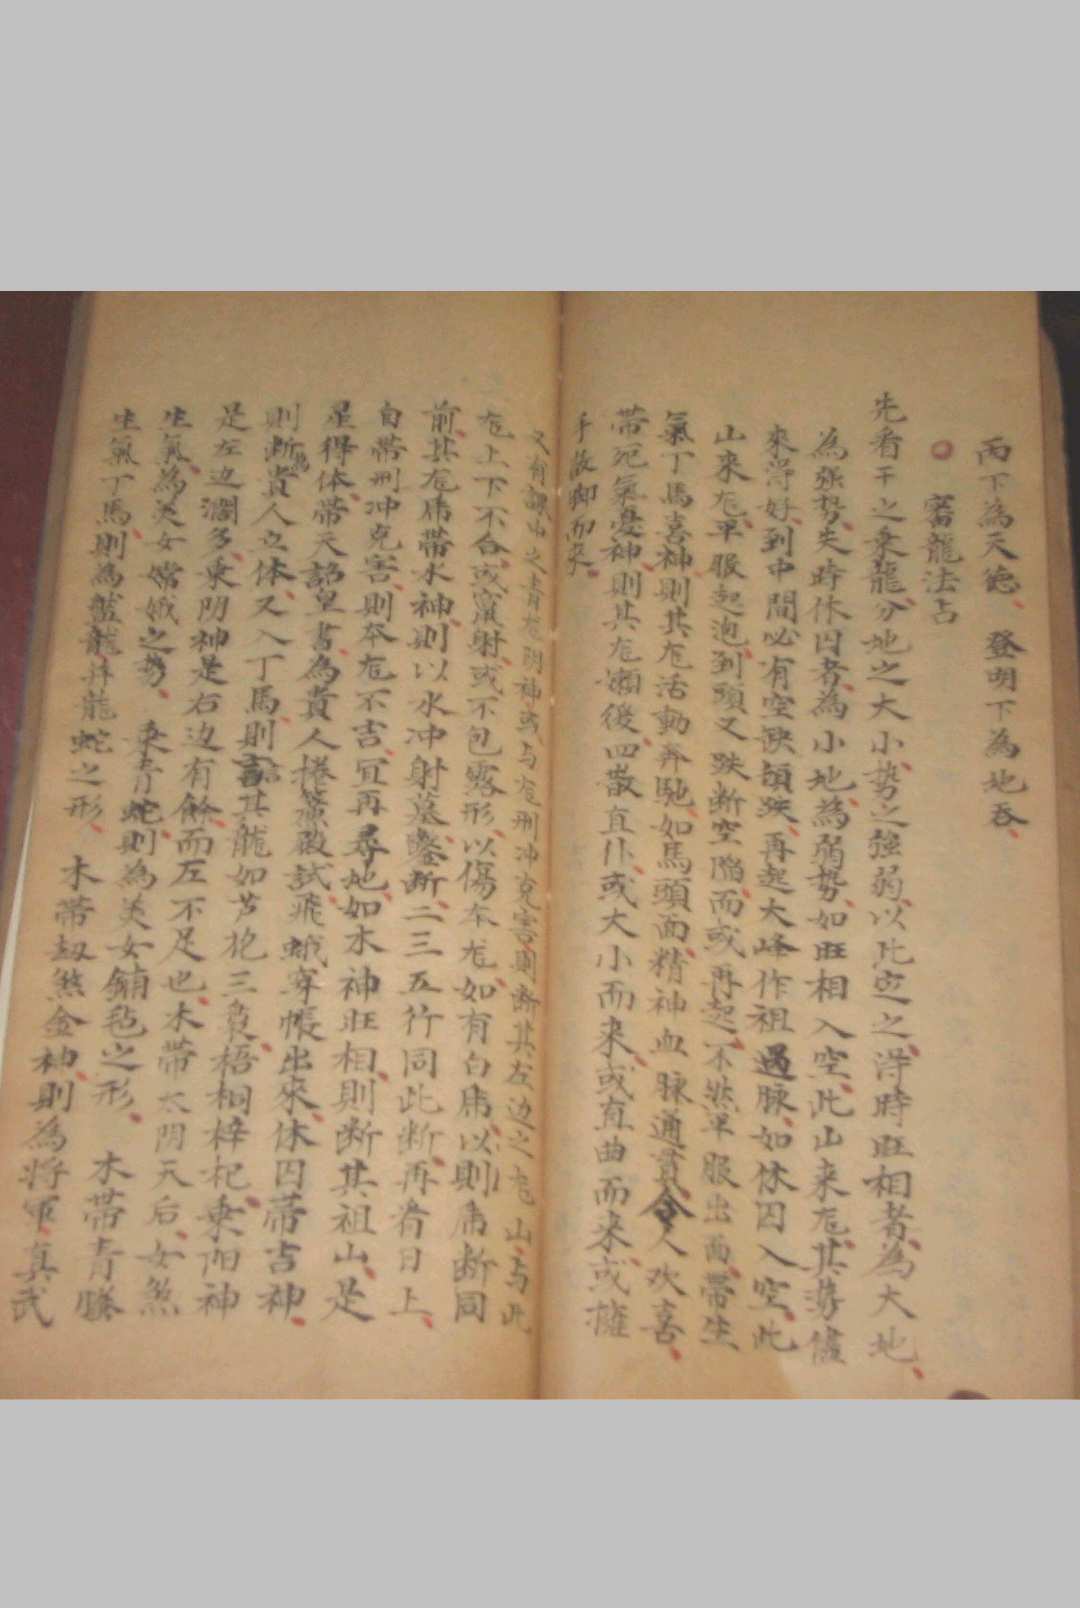 丙下為天德、登明下為地吞、
審龍法占
先看干之乘龍、分地之大小、势之強弱、以此定之、得時旺相者、為大地、
為強势、失時休囚者、為小地、為弱势、如旺相入空、此山来龙、其势
來得好、到中間必有空缺、再起大峰作祖過脉、如休囚入空、此
山来龙、平服起泡、到頭又跌断空陷、而或再起、不然平服出面、帶生
氣丁馬喜神、則其龙活動奔馳、如馬頭面、精神血脉通貫、令人欢喜、
帶死氣凶神、則其龙懶後四散直仆、或大小而来、或直曲而来、或擁
手放脚而来、
又有課中之青龙阴神或与龙刑冲克害、則断其左边之龙山与此
龙上下不合、或窝射、或不包露形、以傷本龙、如有白虎、以則虎断同
前、其龙虎帶水神、則以水冲射墓、鑿断、二三五行同此断、再看日上、
自帶刑冲克害、則本龙不吉、宜再尋地、如木神旺相、則断其祖山、是
星得体、帶天詔皇書、為貴人捲簾殿試、飛蛾穿帳出來、休囚帶吉神、
則断為貴人立体、又入丁馬、則言其龍如芦花三裊、梧桐梓杞、乘阳神
是左边濶多、乘阴神是右边有餘、而左不足也、木帶太阴天后、女煞
生氣、為美女嫦娥之势、乘青蛇、則為美女鋪毡之形、木帶青螣
生氣丁馬、則為盤龍升龍蛇之形、木帶劫煞金神、則為将軍真武